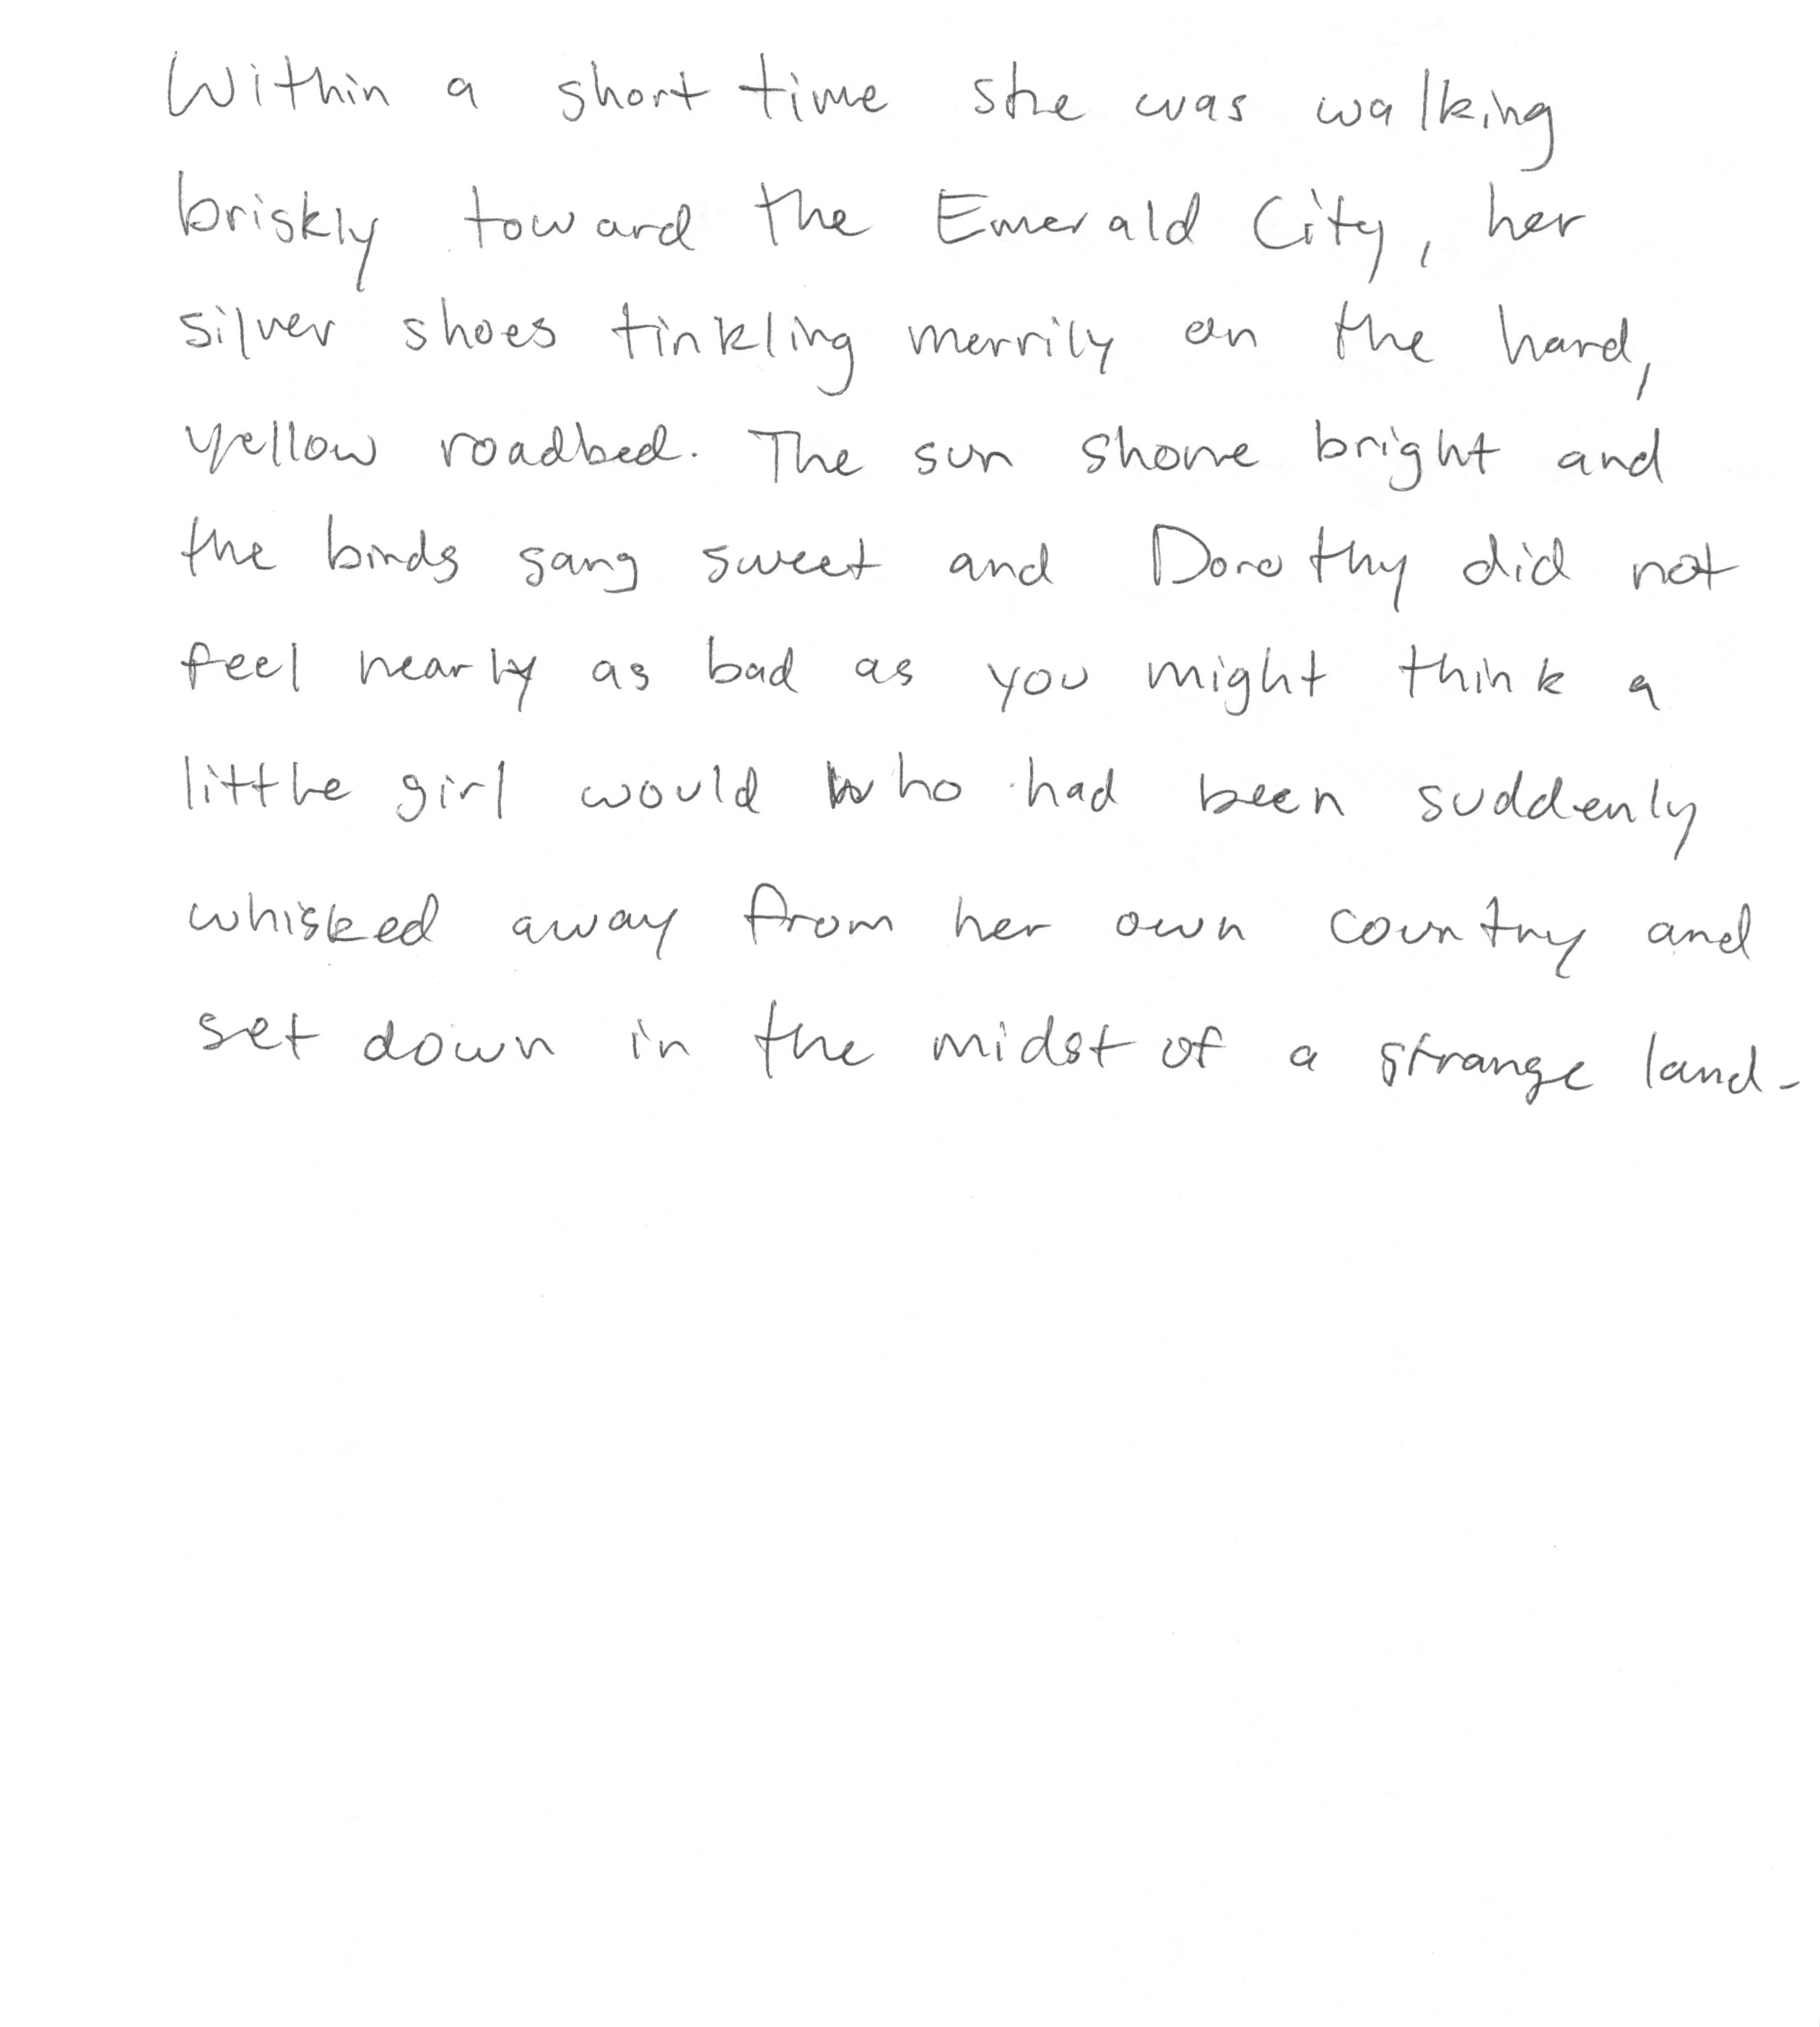 Within a short time she was walking
briskly toward the Emerald City, her
silver shoes tinkling merrily on the hard,
yellow roadbed. The sun shone bright and
the birds sang sweet and Dorothy did not
feel nearly as bad as you might think a
little girl would who had been suddenly
whisked away from her own country and
set down in the midst of a strange land.